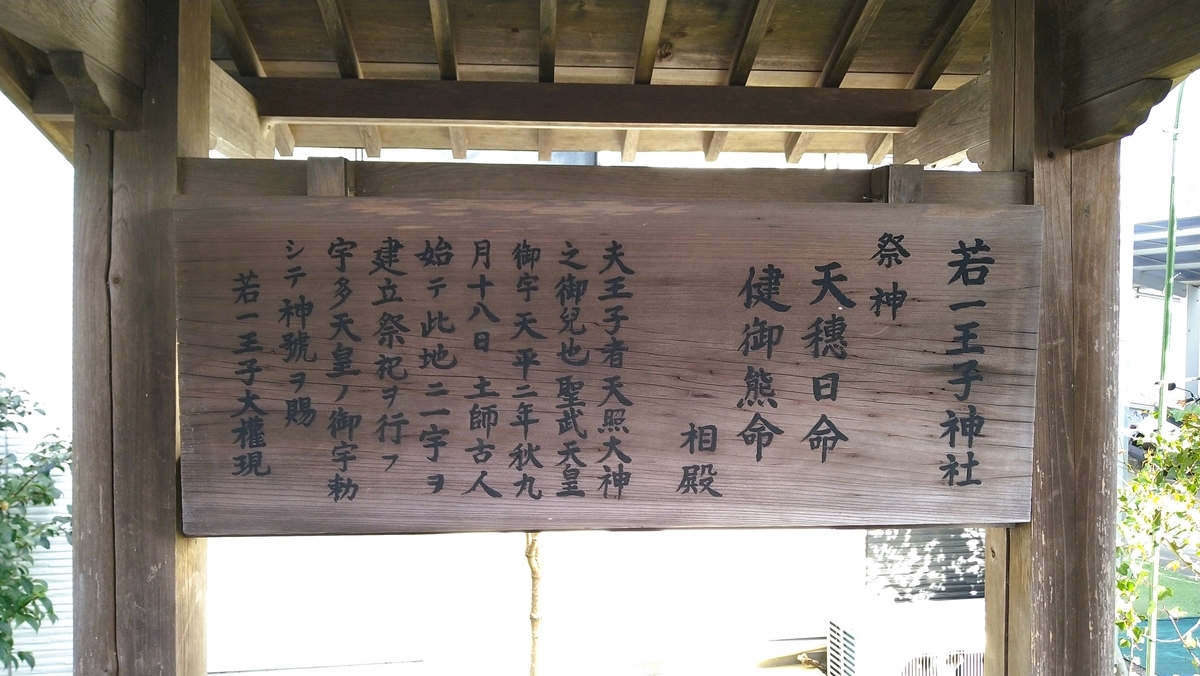 若一王子神社
祭神
天穗日命
健御熊命
相殿
夫王子者天照大神
之御兒也聖武天皇
御宇天平二年秋九
月十八日土師古人
始テ此地ニ一宇ヲ
建立祭祀ヲ行フ
宇多天皇ノ御宇勅
シテ神號ヲ賜
若一王子大權現